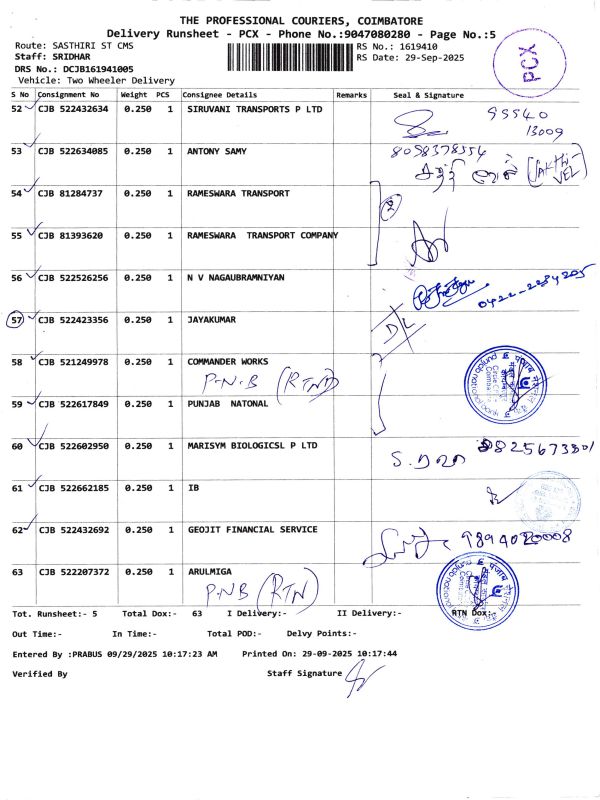 THE PROFESSIONAL COURIERS, COIMBATORE
Delivery Runsheet - PCX - Phone No.:9047080280 - Page No.:5
Route: SASTHIRI ST CMS RS No.: 1619410
Staff: SRIDHAR RS Date: 29-Sep-2025
DRS No.: DCJB161941005
Vehicle: Two Wheeler Delivery
PCX
S No Consignment No Weight PCS Consignee Details Remarks Seal & Signature
52 CJB 522432634 0.250 1 SIRUVANI TRANSPORTS P LTD 99540
13009
53 CJB 522634085 0.250 1 ANTONY SAMY 8098378554
சக்தி வேல் (SAKTHI VEL)
54 CJB 81284737 0.250 1 RAMESWARA TRANSPORT
55 CJB 81393620 0.250 1 RAMESWARA TRANSPORT COMPANY
56 CJB 522526256 0.250 1 N V NAGAUBRAMNIYAN 0422-2234205
57 CJB 522423356 0.250 1 JAYAKUMAR D/L
58 CJB 521249978 0.250 1 COMMANDER WORKS
P.N.B (RTN)
59 CJB 522617849 0.250 1 PUNJAB NATONAL
60 CJB 522602950 0.250 1 MARISYM BIOLOGICSL P LTD 9825673801
61 CJB 522662185 0.250 1 IB
62 CJB 522432692 0.250 1 GEOJIT FINANCIAL SERVICE 9894020008
63 CJB 522207372 0.250 1 ARULMIGA
P.N.B (RTN)
Tot. Runsheet:- 5 Total Dox:- 63 I Delivery:- II Delivery:- RTN Dox:-
Out Time:- In Time:- Total POD:- Delvy Points:-
Entered By :PRABUS 09/29/2025 10:17:23 AM Printed On: 29-09-2025 10:17:44
Verified By Staff Signature